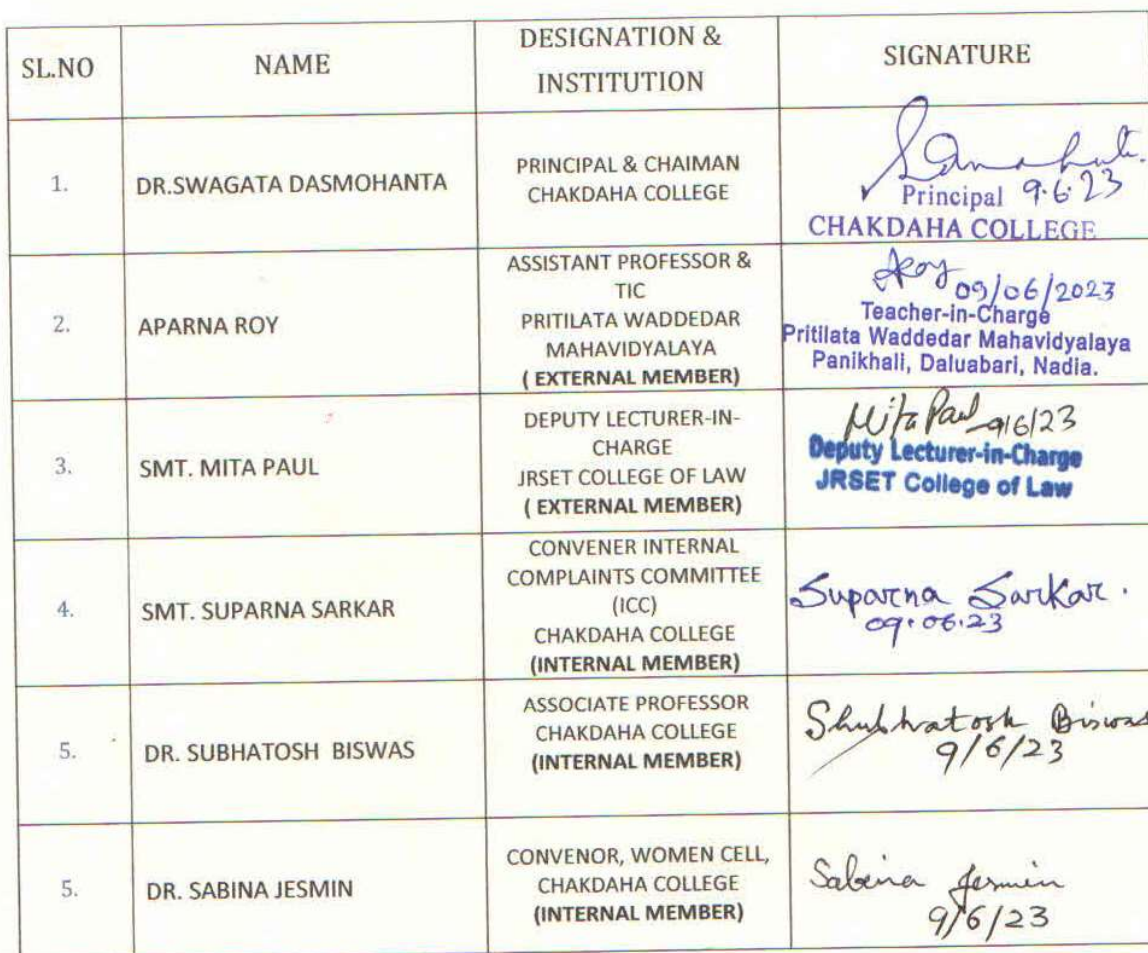 SL.NO
NAME
DESIGNATION &
INSTITUTION
SIGNATURE
1.
DR.SWAGATA DASMOHANTA
PRINCIPAL & CHAIMAN
CHAKDAHA COLLEGE
Principal 9.6.23
CHAKDAHA COLLEGE
2.
APARNA ROY
ASSISTANT PROFESSOR &
TIC
PRITILATA WADDEDAR
MAHAVIDYALAYA
( EXTERNAL MEMBER)
ARoy 09/06/2023
Teacher-in-Charge
Pritilata Waddedar Mahavidyalaya
Panikhali, Daluabari, Nadia.
3.
SMT. MITA PAUL
DEPUTY LECTURER-IN-
CHARGE
JRSET COLLEGE OF LAW
( EXTERNAL MEMBER)
Mita Paul 9/6/23
Deputy Lecturer-in-Charge
JRSET College of Law
4.
SMT. SUPARNA SARKAR
CONVENER INTERNAL
COMPLAINTS COMMITTEE
(ICC)
CHAKDAHA COLLEGE
(INTERNAL MEMBER)
Suparna Sarkar.
09.06.23
5.
DR. SUBHATOSH BISWAS
ASSOCIATE PROFESSOR
CHAKDAHA COLLEGE
(INTERNAL MEMBER)
Shubhatosh Biswas
9/6/23
5.
DR. SABINA JESMIN
CONVENOR, WOMEN CELL,
CHAKDAHA COLLEGE
(INTERNAL MEMBER)
Sabina Jesmin
9/6/23